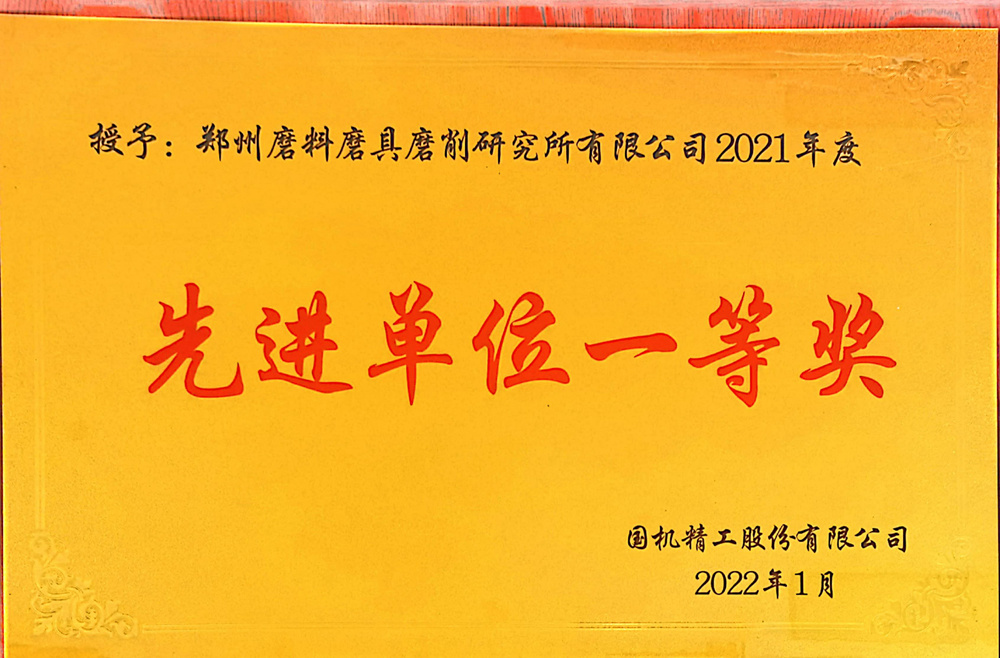 授予：郑州磨料磨具磨削研究所有限公司2021年度
先进单位一等奖
国机精工股份有限公司
2022年1月